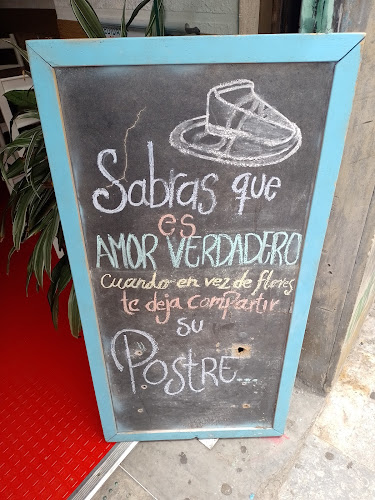 Sabras que
es
AMOR VERDADERO
Cuando en vez de flores
te deja compartir
su
Postre